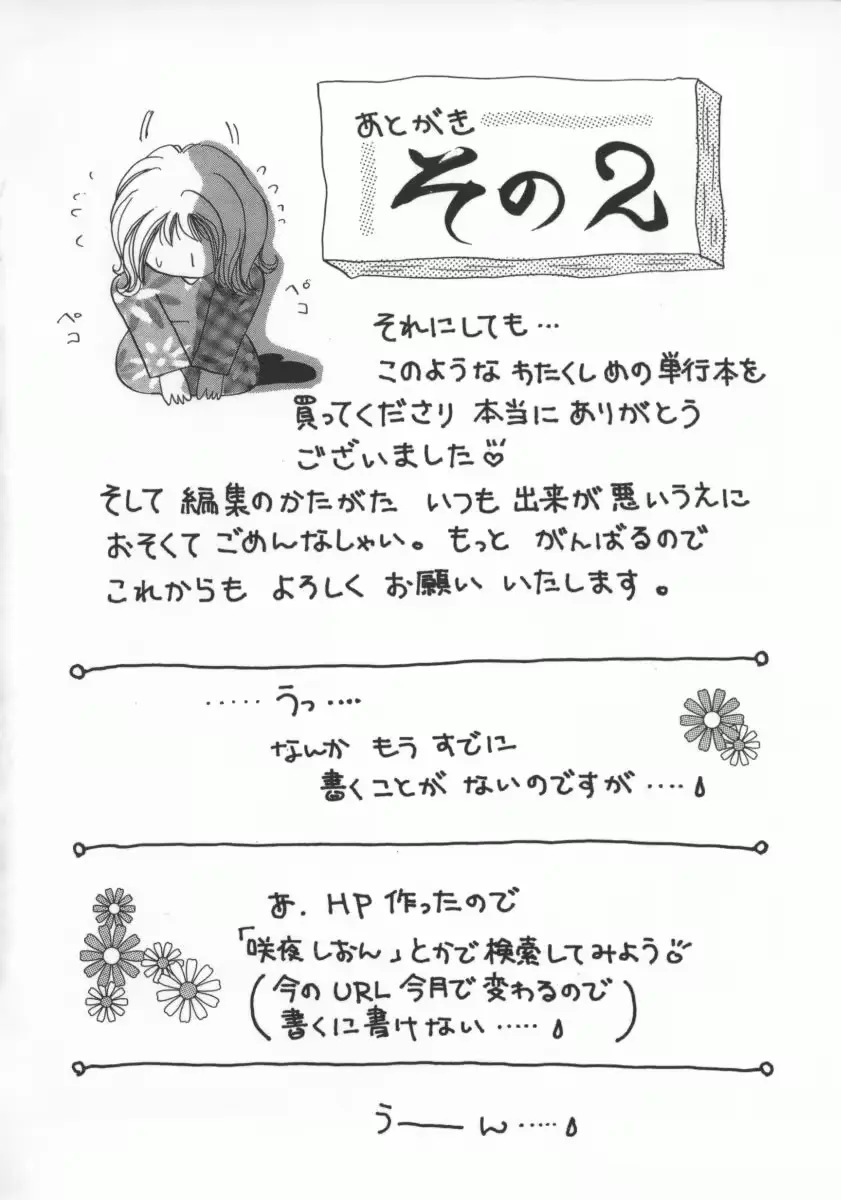 あとがき
その2
ペコ
ペコ
それにしても…
このような わたくしめの単行本を
買ってくださり 本当に ありがとう
ございました♡
そして 編集のかたがた いつも 出来が 悪いうえに
おそくて ごめんなしゃい。もっと がんばるので
これからも よろしく お願い いたします。
……うっ‥‥
なんか もう すでに
書くことが ないのですが‥‥
あ. HP 作ったので
「咲夜 しおん」とかで 検索してみよう♡
(今の URL 今月で 変わるので
書くに書けない‥‥‥)
うーーん‥‥‥